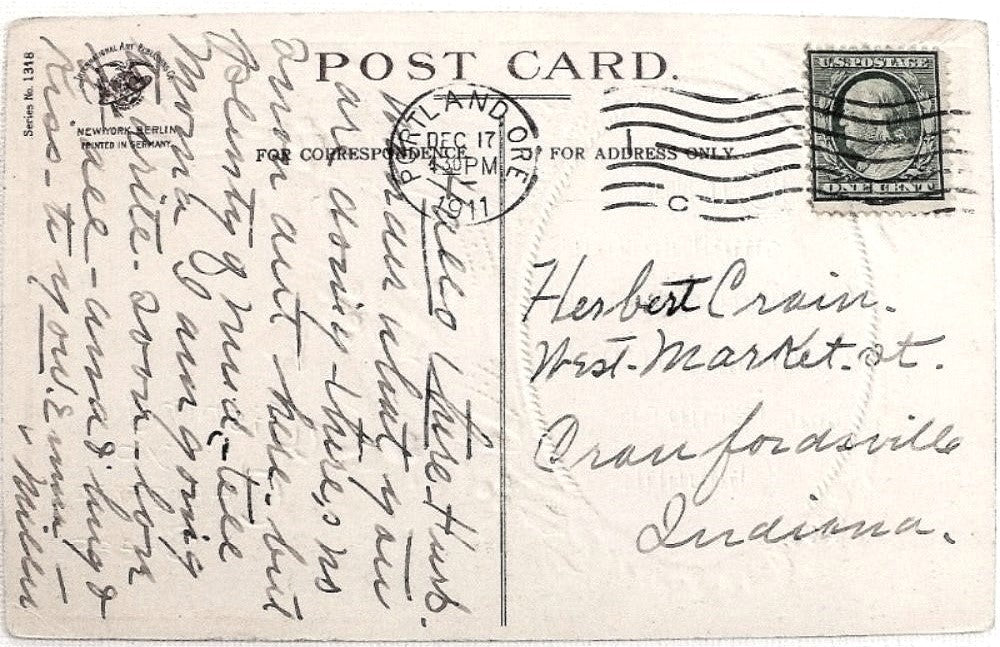 Series No. 1318
International Art Publishing Co.
NEW YORK BERLIN
PRINTED IN GERMANY.
POST CARD.
FOR CORRESPONDENCE
FOR ADDRESS ONLY.
PORTLAND, ORE.
DEC 17
4 30 PM
1911
C
U.S. POSTAGE
ONE CENT
Hello there, Hurb.
what you
are doing there, ns
out here but
Plenty of mud, tell
Mona am going
write soon lon
and hug &
Kiss to you. Emma
Miller
Herbert Crain.
West. Market. st.
Crawfordsville
Indiana.